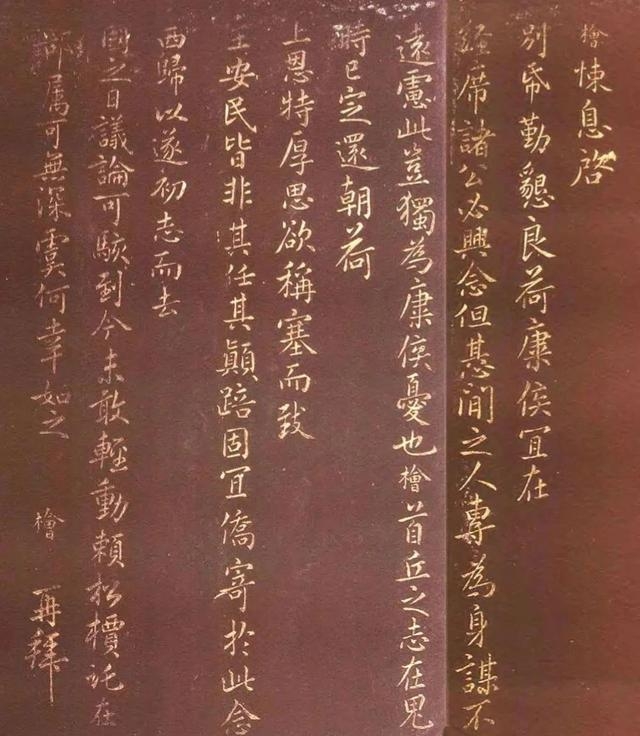 檜悚息啓
別帋勤懇良荷康侯冝在
經席諸公必興念但惎間之人專為身謀不
遠慮此豈獨為康侯憂也檜首丘之志在見
時已定還朝荷
上恩特厚思欲稱塞而致
主安民皆非其任其顛踣固冝僑寄於此念
西歸以遂初志而去
國之日議論可駭到今未敢輕動賴松檟託在
部属可無深虞何幸如之 檜 再拜